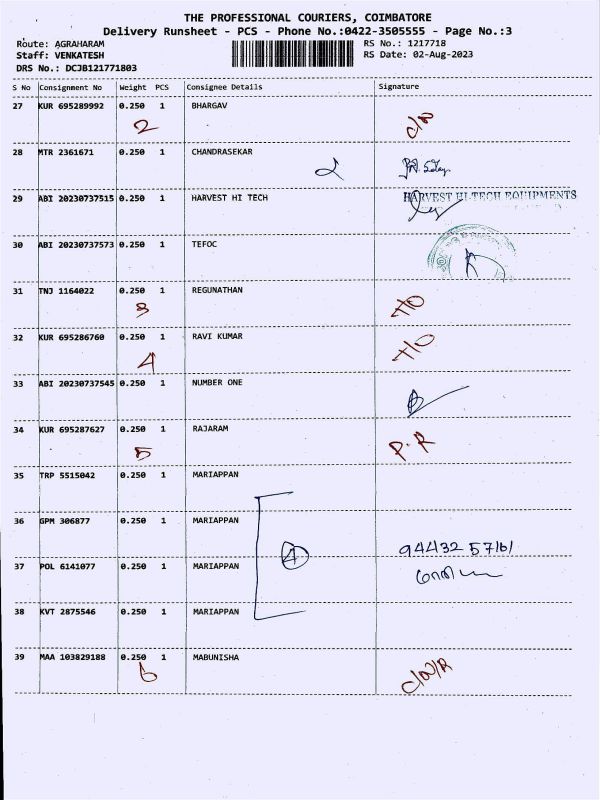 THE PROFESSIONAL COURIERS, COIMBATORE
Delivery Runsheet - PCS - Phone No.:0422-3505555 - Page No.:3
Route: AGRAHARAM RS No.: 1217718
Staff: VENKATESH RS Date: 02-Aug-2023
DRS No.: DCJB121771803
S No Consignment No Weight PCS Consignee Details Signature
27 KUR 695289992 0.250 1 BHARGAV
2
28 MTR 2361671 0.250 1 CHANDRASEKAR
29 ABI 20230737515 0.250 1 HARVEST HI TECH HARVEST HI-TECH EQUIPMENTS
30 ABI 20230737573 0.250 1 TEFOC
31 TNJ 1164022 0.250 1 REGUNATHAN
3
32 KUR 695286760 0.250 1 RAVI KUMAR
4
33 ABI 20230737545 0.250 1 NUMBER ONE
34 KUR 695287627 0.250 1 RAJARAM P.R
5
35 TRP 5515042 0.250 1 MARIAPPAN
36 GPM 306877 0.250 1 MARIAPPAN
4 94432 57161
37 POL 6141077 0.250 1 MARIAPPAN
38 KVT 2875546 0.250 1 MARIAPPAN
39 MAA 103829188 0.250 1 MABUNISHA
6